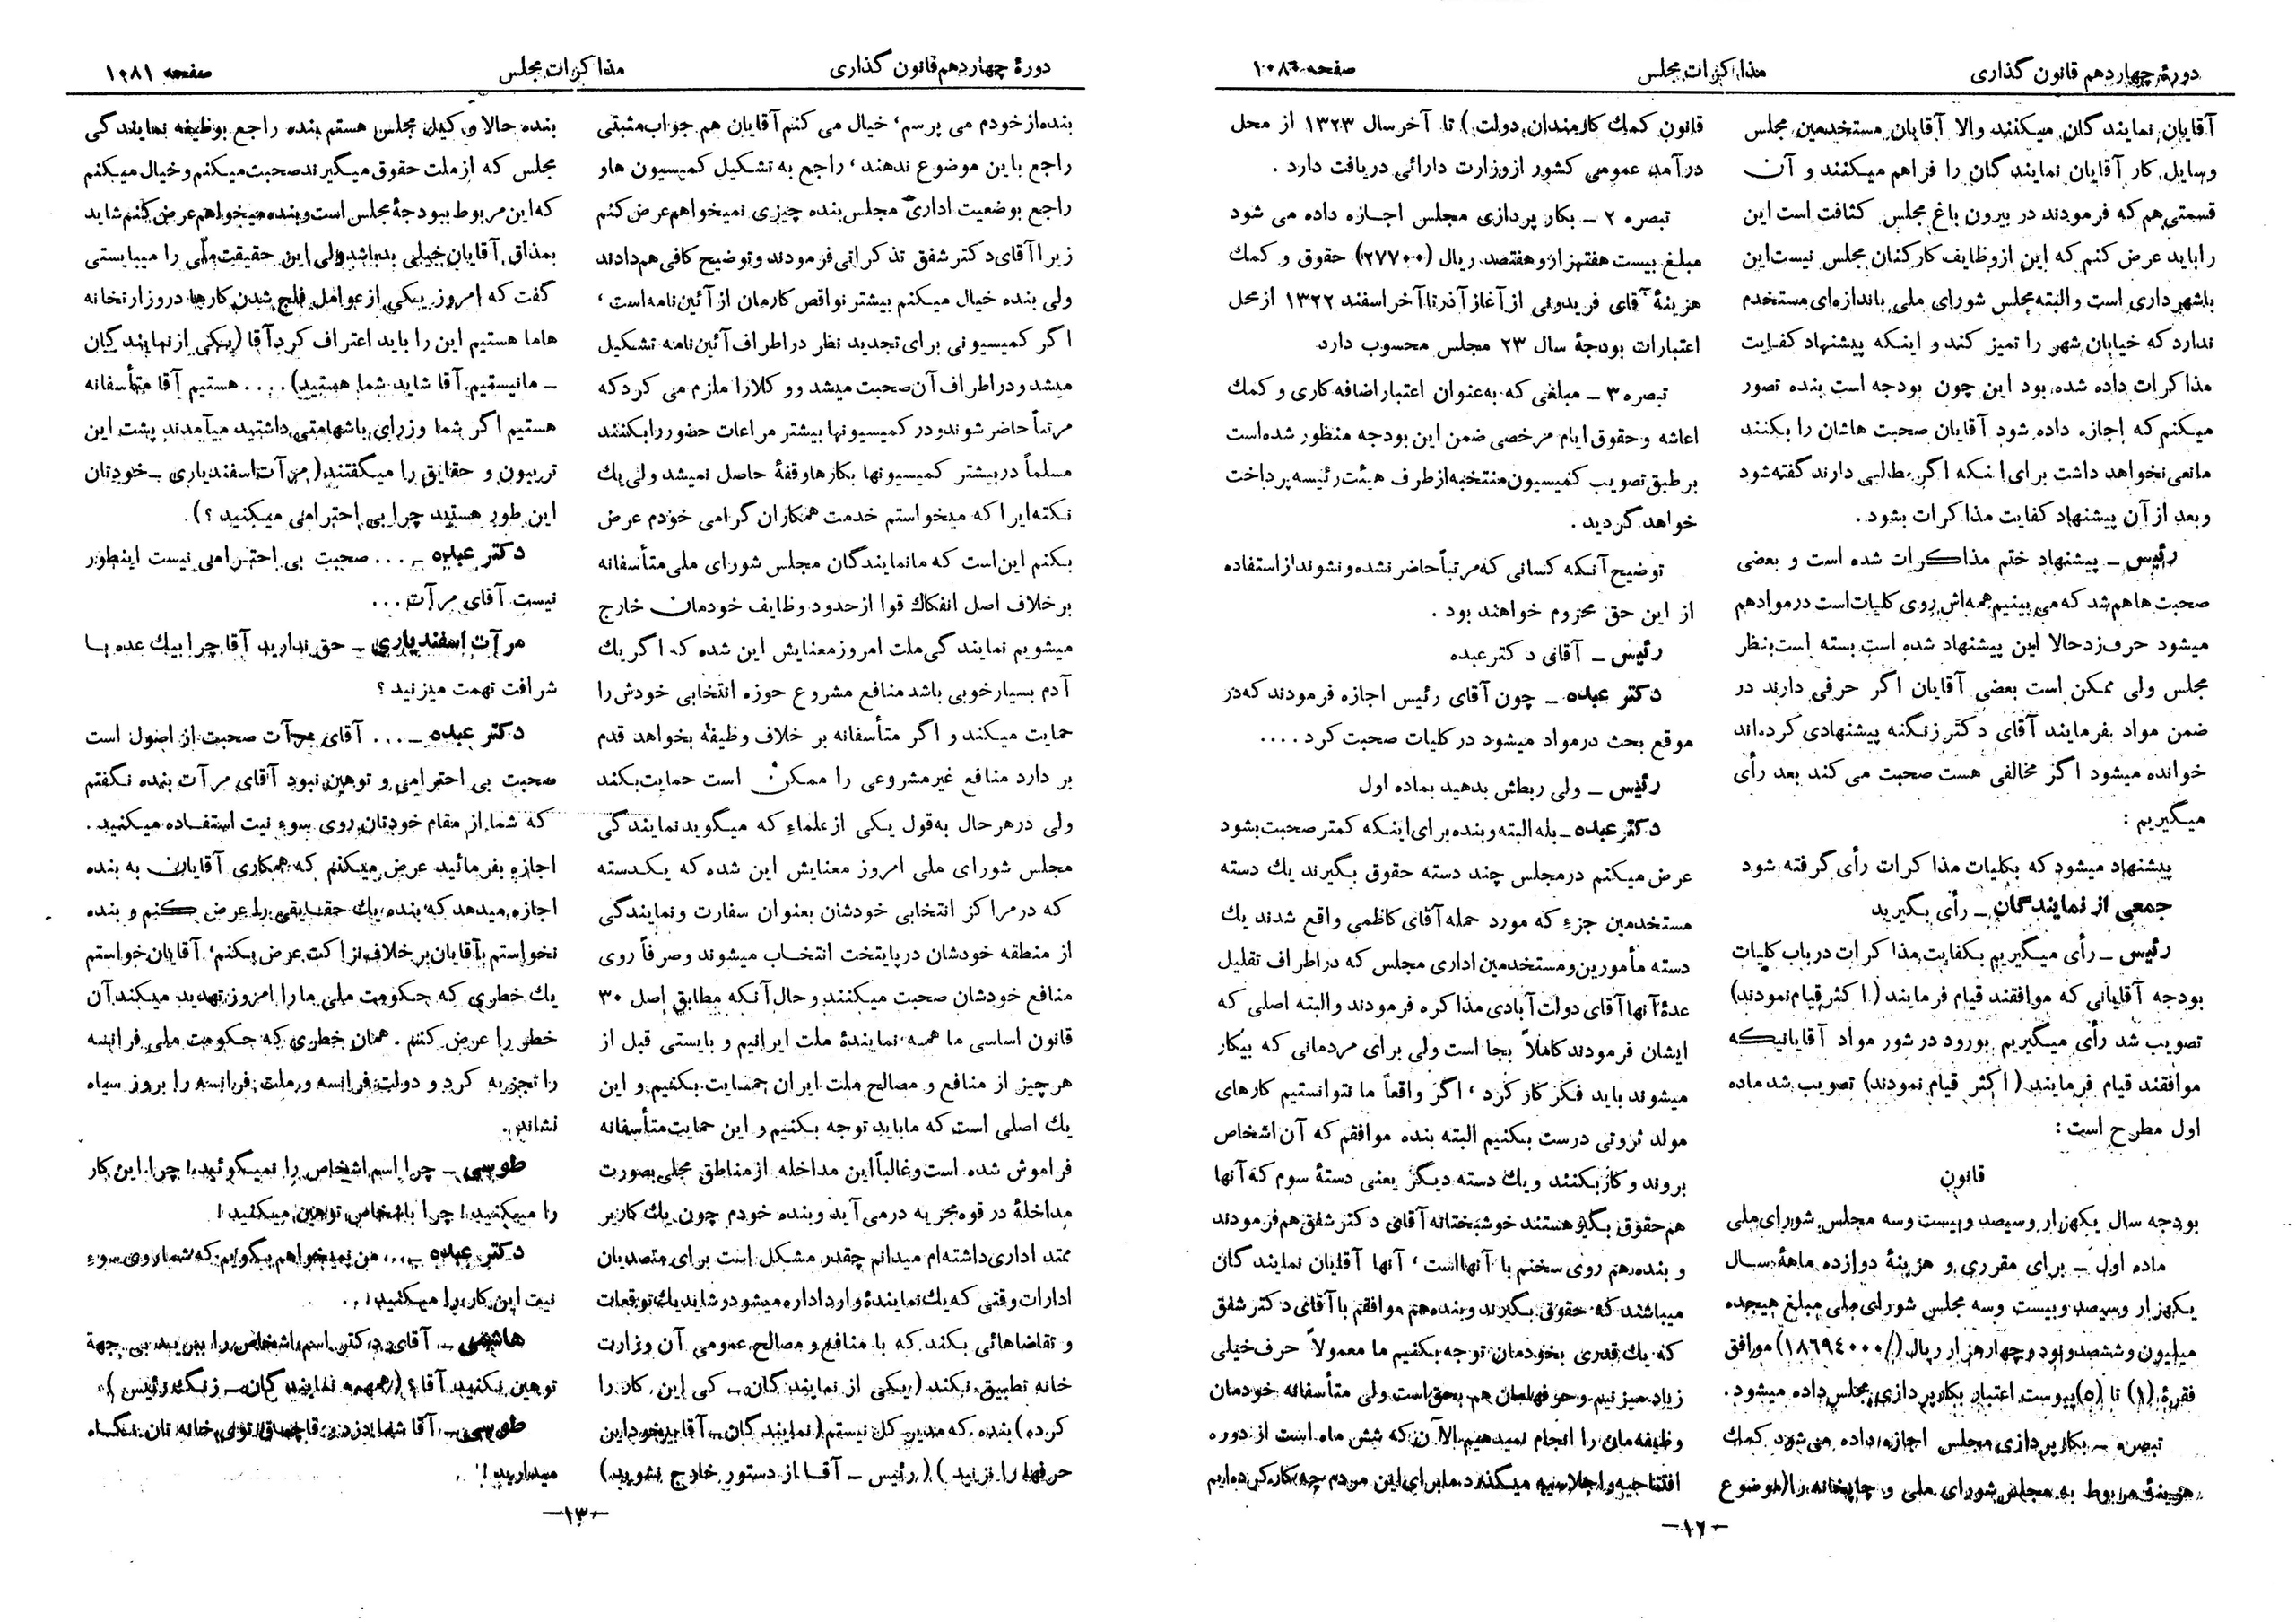 دورهٔ چهاردهم قانون گذاری
مذاکرات مجلس
صفحه ۱۰۸۰
آقایان نمایندگان میکنند والا آقایان مستخدمین مجلس
وسایل کار آقایان نمایندگان را فراهم میکنند و آن
قسمتی هم که فرمودند در بیرون باغ مجلس کثافت است این
راباید عرض کنم که این ازوظایف کارکنان مجلس نیست این
باشهرداری است والبته مجلس شورای ملی باندازه‌ای مستخدم
ندارد که خیابان شهر را تمیز کند و اینکه پیشنهاد کفایت
مذاکرات داده شده بود این چون بودجه است بنده تصور
میکنم که اجازه داده شود آقایان صحبت هاشان را بکنند
مانعی نخواهد داشت برای اینکه اگر مطلبی دارند گفته شود
وبعد از آن پیشنهاد کفایت مذاکرات بشود.
رئیس ـ پیشنهاد ختم مذاکرات شده است و بعضی
صحبت هاهم شد که می بینیم همه‌اش روی کلیات است درموادهم
میشود حرف زد حالا این پیشنهاد شده است بسته است بنظر
مجلس ولی ممکن است بعضی آقایان اگر حرفی دارند در
ضمن مواد بفرمایند آقای دکتر زنگنه پیشنهادی کرده‌اند
خوانده میشود اگر مخالفی هست صحبت می کند بعد رأی
میگیریم :
پیشنهاد میشود که بکلیات مذاکرات رأی گرفته شود
جمعی از نمایندگان ـ رأی بگیرید
رئیس ـ رأی میگیریم بکفایت مذاکرات درباب کلیات
بودجه آقایانی که موافقند قیام فرمایند (اکثر قیام نمودند)
تصویب شد رأی میگیریم بورود در شور مواد آقایانیکه
موافقند قیام فرمایند (اکثر قیام نمودند) تصویب شد ماده
اول مطرح است :
قانون
بودجه سال یکهزار وسیصد وبیست وسه مجلس شورای ملی
ماده اول ـ برای مقرری و هزینهٔ دوازده ماههٔ سال
یکهزار وسیصد وبیست وسه مجلس شورای ملی مبلغ هیجده
میلیون وششصد ونود وچهار هزار ریال (/۱۸۶۹۴۰۰۰) موافق
فقرهٔ (۱) تا (۵) پیوست اعتبار بکارپردازی مجلس داده میشود.
تبصره ـ بکارپردازی مجلس اجازه داده می شود کمك
هزینهٔ مربوط به مجلس شورای ملی و چاپخانه را (موضوع
قانون کمك کارمندان دولت) تا آخر سال ۱۳۲۳ از محل
درآمد عمومی کشور ازوزارت دارائی دریافت دارد .
تبصره ۲ ـ بکارپردازی مجلس اجازه داده می شود
مبلغ بیست هفتهزار وهفتصد ریال (۲۷۷۰۰) حقوق و کمك
هزینهٔ آقای فریدونی از آغاز آذر تا آخر اسفند ۱۳۲۲ ازمحل
اعتبارات بودجهٔ سال ۲۳ مجلس محسوب دارد.
تبصره ۳ ـ مبلغی که به‌عنوان اعتبار اضافه کاری و کمك
اعاشه وحقوق ایام مرخصی ضمن این بودجه منظور شده است
برطبق تصویب کمیسیون منتخبه ازطرف هیئت رئیسه پرداخت
خواهد گردید .
توضیح آنکه کسانی که مرتباً حاضر نشده ونشوند از استفاده
از این حق محروم خواهند بود .
رئیس ـ آقای دکتر عبده
دکتر عبده ـ چون آقای رئیس اجازه فرمودند که در
موقع بحث درمواد میشود در کلیات صحبت کرد ....
رئیس ـ ولی ربطش بدهید بماده اول
دکتر عبده ـ بله البته وبنده برای اینکه کمتر صحبت بشود
عرض میکنم درمجلس چند دسته حقوق بگیرند یك دسته
مستخدمین جزء که مورد حمله آقای کاظمی واقع شدند یك
دسته مأمورین ومستخدمین اداری مجلس که دراطراف تقلیل
عدهٔ آنها آقای دولت آبادی مذاکره فرمودند والبته اصلی که
ایشان فرمودند کاملاً بجا است ولی برای مردمانی که بیکار
میشوند باید فکر کار کرد ، اگر واقعاً ما نتوانستیم کارهای
مولد ثروتی درست بکنیم البته بنده موافقم که آن اشخاص
بروند وکار بکنند ویك دسته دیگر یعنی دستهٔ سوم که آنها
هم حقوق بگیر هستند خوشبختانه آقای دکتر شفق هم فرمودند
و بنده هم روی سخنم با آنهااست ، آنها آقایان نمایندگان
میباشند که حقوق بگیرند وبنده هم موافقم با آقای دکتر شفق
که یك قدری بخودمان توجه بکنیم ما معمولاً حرف خیلی
زیاد میزنیم وحرفهامان هم بحق است ولی متأسفانه خودمان
وظیفه‌مان را انجام نمیدهیم الآن که شش ماه است از دوره
افتتاحیه واجلاسیه میگذرد مابرای این مردم چه کار کرده‌ایم
ـ۱۲ـ
دورهٔ چهاردهم قانون گذاری
مذاکرات مجلس
صفحه ۱۰۸۱
بنده ازخودم می پرسم ، خیال می کنم آقایان هم جواب مثبتی
راجع باین موضوع ندهند ، راجع به تشکیل کمیسیون هاو
راجع بوضعیت اداری مجلس بنده چیزی نمیخواهم عرض کنم
زیرا آقای دکتر شفق تذکراتی فرمودند وتوضیح کافی هم دادند
ولی بنده خیال میکنم بیشتر نواقص کارمان از آئین نامه است ،
اگر کمیسیونی برای تجدید نظر دراطراف آئین نامه تشکیل
میشد ودراطراف آن صحبت میشد وو کلارا ملزم می کرد که
مرتباً حاضر شوند ودر کمیسیونها بیشتر مراعات حضور رابکنند
مسلماً دربیشتر کمیسیونها بکارهاوقفهٔ حاصل نمیشد ولی یك
نکته‌ایرا که میخواستم خدمت همکاران گرامی خودم عرض
بکنم این است که مانمایندگان مجلس شورای ملی متأسفانه
برخلاف اصل انفکاك قوا ازحدود وظایف خودمان خارج
میشویم نمایندگی ملت امروز معنایش این شده که اگر یك
آدم بسیار خوبی باشد منافع مشروع حوزه انتخابی خودش را
حمایت میکند و اگر متأسفانه بر خلاف وظیفه بخواهد قدم
بر دارد منافع غیرمشروعی را ممکن است حمایت بکند
ولی درهرحال به‌قول یکی ازعلماء که میگوید نمایندگی
مجلس شورای ملی امروز معنایش این شده که یکدسته
که درمراکز انتخابی خودشان بعنوان سفارت ونمایندگی
از منطقه خودشان درپایتخت انتخاب میشوند وصرفاً روی
منافع خودشان صحبت میکنند وحال آنکه مطابق اصل ۳۰
قانون اساسی ما همه نمایندهٔ ملت ایرانیم و بایستی قبل از
هر چیز از منافع و مصالح ملت ایران حمایت بکنیم و این
یك اصلی است که ماباید توجه بکنیم و این حمایت متأسفانه
فراموش شده است وغالباً این مداخله ازمناطق محلی بصورت
مداخلهٔ در قوه مجریه درمی آید وبنده خودم چون یك کاریر
ممتد اداری داشته‌ام میدانم چقدر مشکل است برای متصدیان
ادارات وقتی که یك نمایندهٔ وارد اداره میشود وشاید یك توقعات
و تقاضاهائی بکند که با منافع و مصالح عمومی آن وزارت
خانه تطبیق نکند (یکی از نمایندگان ـ کی این کار را
کرده) بنده که مدیر کل نیستم (نمایندگان ـ آقا بیخود این
حرفها را نزنید) (رئیس ـ آقا از دستور خارج نشوید)
بنده حالا و کیل مجلس هستم بنده راجع بوظیفه نمایندگی
مجلس که ازملت حقوق میگیرند صحبت میکنم وخیال میکنم
که این مربوط ببودجهٔ مجلس است وبنده میخواهم عرض کنم شاید
بمذاق آقایان خیلی بد باشد ولی این حقیقت ملّی را میبایستی
گفت که امروز یکی ازعوامل فلج شدن کارها در وزارتخانه
هاما هستیم این را باید اعتراف کرد آقا (یکی از نمایندگان
ـ مانیستیم آقا شاید شما هستید) .... هستیم آقا متأسفانه
هستیم اگر شما وزرای باشهامتی داشتید میآمدند پشت این
تریبون و حقایق را میگفتند (مرآت اسفندیاری ـ خودتان
این طور هستید چرا بی احترامی میکنید ؟).
دکتر عبده ـ ... صحبت بی احترامی نیست اینطور
نیست آقای مرآت ...
مرآت اسفندیاری ـ حق ندارید آقا چرا بیك عده با
شرافت تهمت میزنید ؟
دکتر عبده ـ ... آقای مرآت صحبت از اصول است
صحبت بی احترامی و توهین نبود آقای مرآت بنده نگفتم
که شما از مقام خودتان روی سوء نیت استفاده میکنید .
اجازه بفرمائید عرض میکنم که همکاری آقایان به بنده
اجازه میدهد که بنده یك حقایقی را عرض کنم و بنده
نخواستم بآقایان برخلاف نزاکت عرض بکنم، آقایان خواستم
یك خطری که حکومت ملی ما را امروز تهدید میکند آن
خطر را عرض کنم . همان خطری که حکومت ملی فرانسه
را تجزیه کرد و دولت فرانسه وملت فرانسه را بروز سیاه
نشاند.
طوسی ـ چرا اسم اشخاص را نمیگوئید! چرا این کار
را میکنید! چرا باشخاص توهین میکنید!
دکتر عبده ـ ... من نمیخواهم بگویم که شما روی سوء
نیت این کار را میکنید ...
هاشمی ـ آقای دکتر اسم اشخاص را ببرید بی جهة
توهین نکنید آقا ؟ (همهمه نمایندگان ـ زنگ رئیس)
طوسی ـ آقا شما دزد وقاچاق توی خانه تان نگاه
میدارید!
ـ۱۳ـ